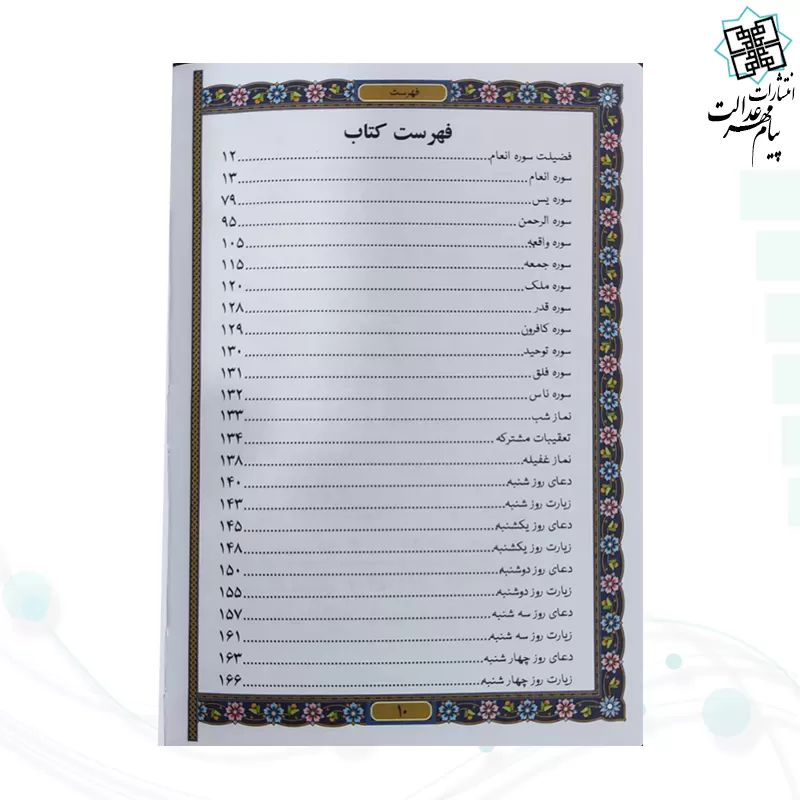 انتشارات
پیام مهر عدالت
فهرست
فهرست کتاب
فضیلت سوره انعام ................ ۱۲
سوره انعام ................ ۱۳
سوره یس ................ ۷۹
سوره الرحمن ................ ۹۵
سوره واقعه ................ ۱۰۵
سوره جمعه ................ ۱۱۵
سوره ملک ................ ۱۲۰
سوره قدر ................ ۱۲۸
سوره کافرون ................ ۱۲۹
سوره توحید ................ ۱۳۰
سوره فلق ................ ۱۳۱
سوره ناس ................ ۱۳۲
نماز شب ................ ۱۳۳
تعقیبات مشترکه ................ ۱۳۴
نماز غفیله ................ ۱۳۸
دعای روز شنبه ................ ۱۴۰
زیارت روز شنبه ................ ۱۴۳
دعای روز یکشنبه ................ ۱۴۵
زیارت روز یکشنبه ................ ۱۴۸
دعای روز دوشنبه ................ ۱۵۰
زیارت روز دوشنبه ................ ۱۵۵
دعای روز سه شنبه ................ ۱۵۷
زیارت روز سه شنبه ................ ۱۶۱
دعای روز چهار شنبه ................ ۱۶۳
زیارت روز چهار شنبه ................ ۱۶۶
۱۰